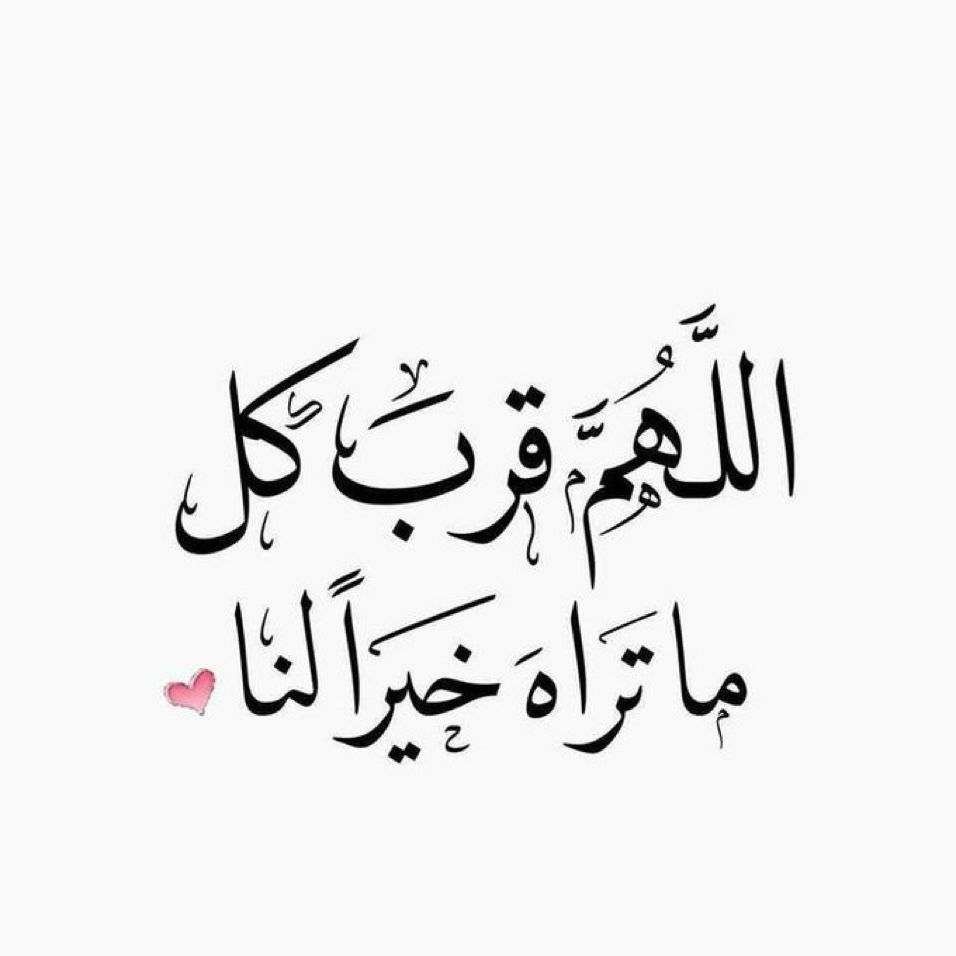 اللَّهُمَّ قربَ كل
ما ترَاهَ خيَراً لنا